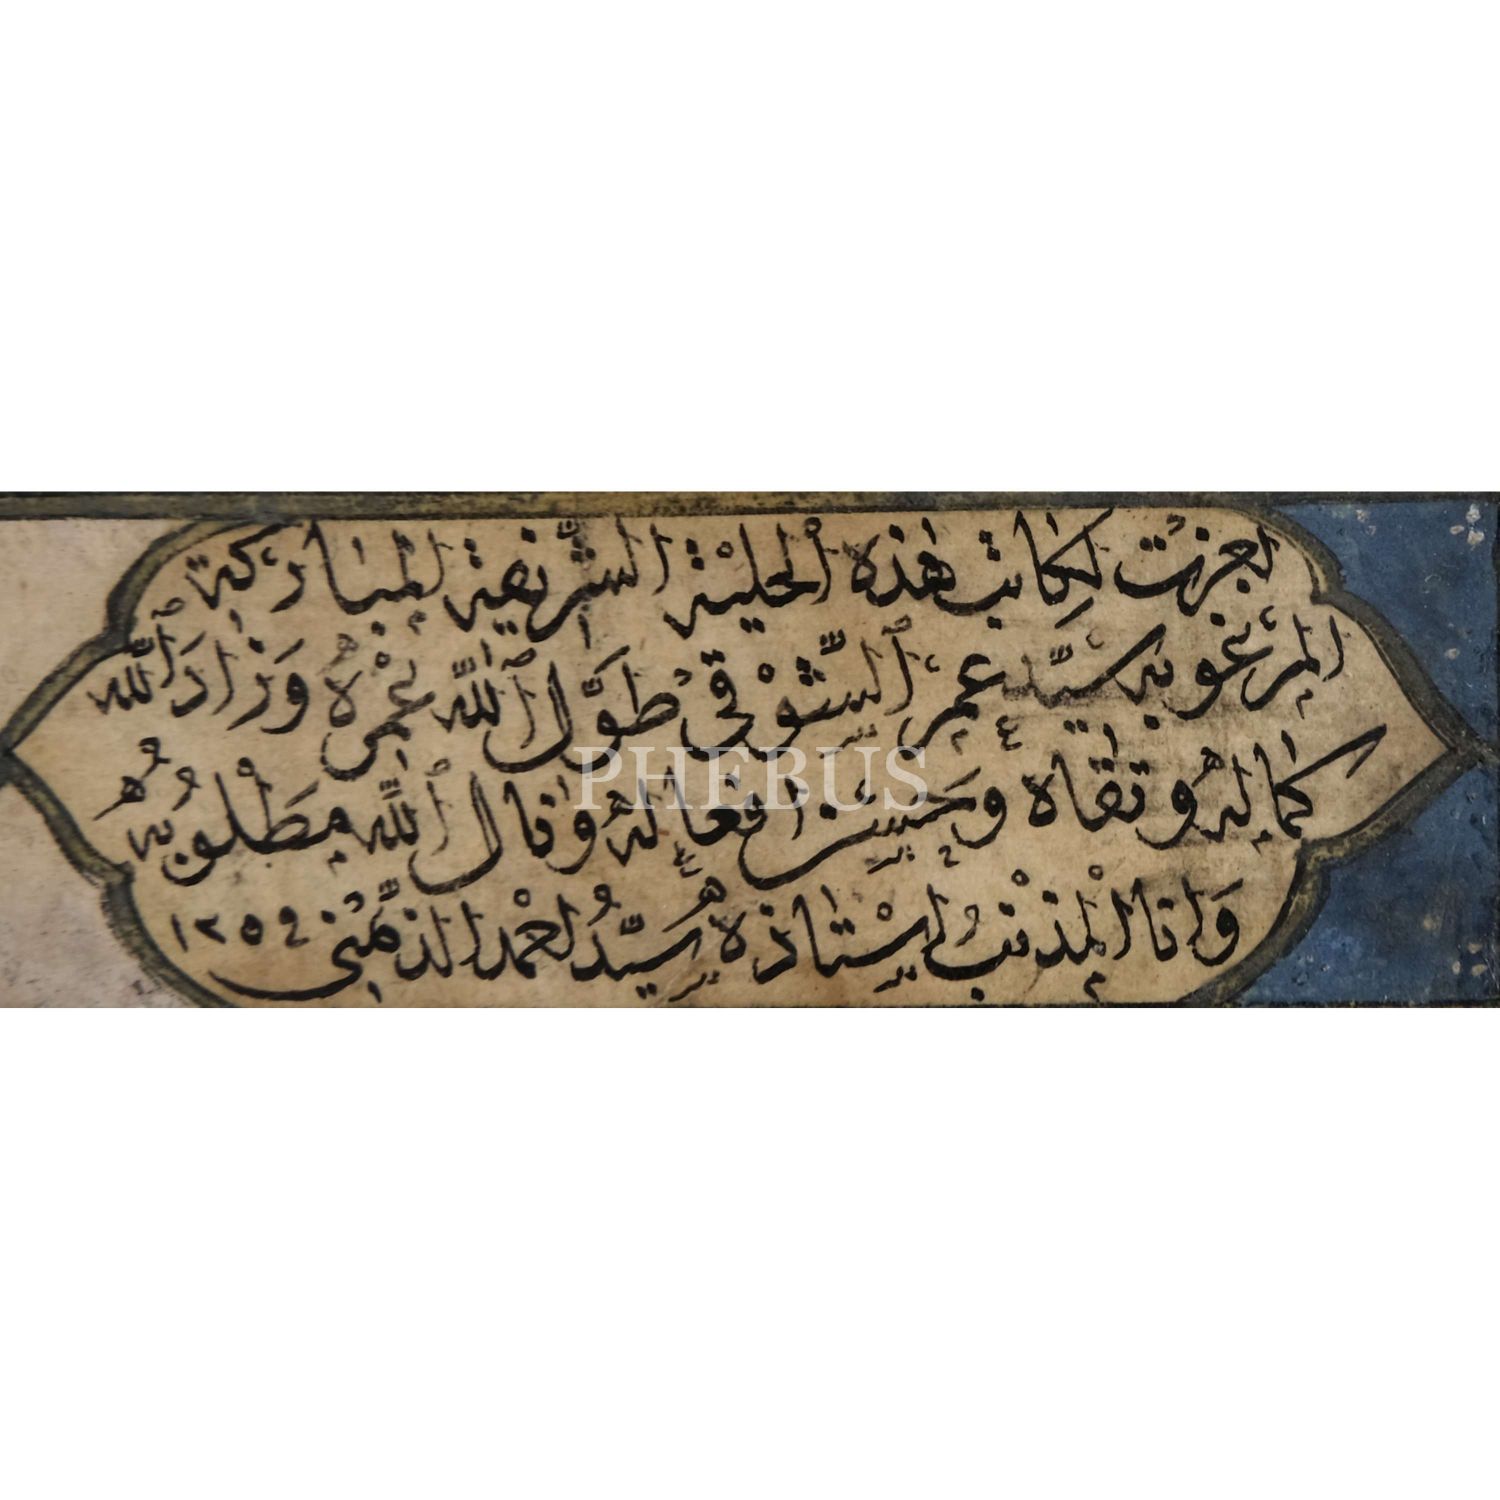 اجزت لكاتب هذه الحلية الشريفة المباركة
المرغوبه سيد عمر الشوقي طول الله عمره وزاد الله
كماله وتقاه وحسن افعاله ونال الله مطلوبه
وانا المذنب استاذه سيد احمد الذهني ١٢٥٩
PHEBUS